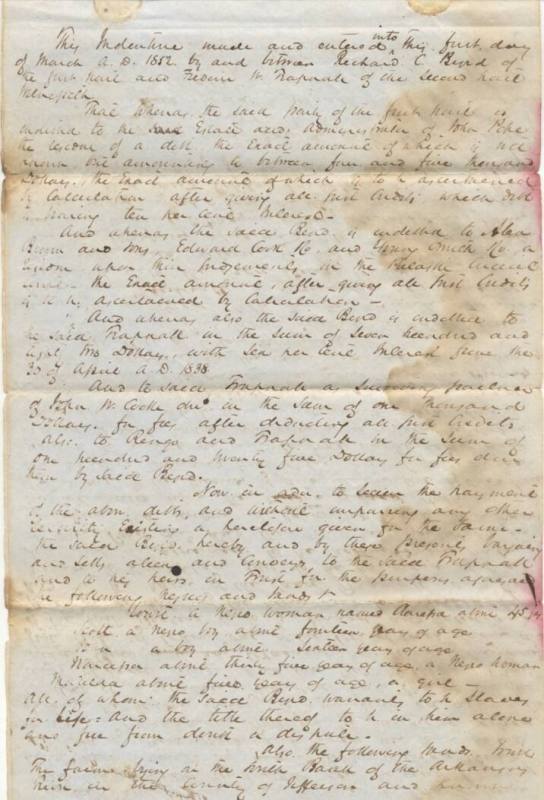 into
This Indenture made and entered this first day
of March A. D. 1852 by and between Richard C Byrd of
the first part and Frederic W. Trapnall of the Second part
Witnesseth
That whereas the said party of the first part is
indebted to the Estate and Administrator of John
the exact amount of which is not
known but amounting to between four and five thousand
Dollars. the Exact amount of which is to be ascertained
by Calculation after giving all just Credits which debt
is bearing ten per Cent Interest—
And whereas the said Byrd is indebted to
and Sons, Edward Cook & Co. and Smith & Co.
upon their Judgements in the Pulaski Circuit
the Exact amount, after giving all Just Credits
is to be ascertained by Calculation—
And whereas also the said Byrd is indebted to
the said Trapnall in the Sum of Seven hundred and
Eight Dollars, with Six per Cent Interest from the
30 of April A. D. 1838
And to said Trapnall as Surviving partner
of John W. Cocke in the Sum of one thousand
Dollars. for fees after deducting all just Credits
also to Ringo and Trapnall in the Sum of
one hundred and twenty five Dollars for fees due
them by said Byrd.
Now in order to Secure the payment
of the above debts, and without impairing any other
Security Existing or heretofore given for the Same—
the said Byrd hereby and by these presents, bargains
and Sells aliens and Conveys to the said Trapnall
and to his heirs in Trust for the purposes aforesaid
the following Negroes and lands
a Negro woman named about 45
a Negro boy about fourteen years of age
a boy about Sixteen years of age
about thirty five years of age, a Negro woman
about five years of age, a girl—
All of whom the said Byrd warrants to be Slaves
for Life. And the title thereof to be in him alone
and free from doubt or dispute.
Also the following lands.
The farm lying on the South Bank of the Arkansas
River in the County of Jefferson and